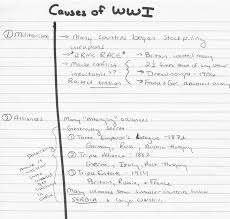 Causes of WWI
① Militarism → Many countries began stockpiling
weapons
→ "ARMS RACE" → Britain
→ Made conflict 2½ times size of any other
inevitable?? → Dreadnought - 1906
Raised tension → France & Ger doubled army
② Alliances Many "entangling" alliances
Generally Secret
① Three Emperor's League - 1872
Germany, Rus, Austria-Hungary
② Triple Alliance 1882
Germany, Italy, Aus-Hungary
③ Triple Entente - 1914
Britain, Russia, & France
Many alliances between smaller countries
SERBIA & larger countries